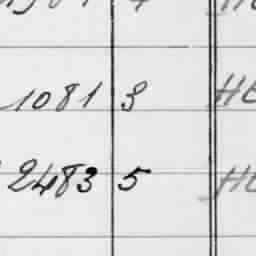 1081 3 HE
2483 5 HE